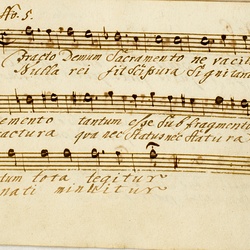 No. 5.
Fracto Demum Sacramento ne vacil
Nulla rei fit scissura Signi tan
emento tantum esse sub fragment
ractura qua nec Status nec Statura
dum tota legitur
nati minuitur